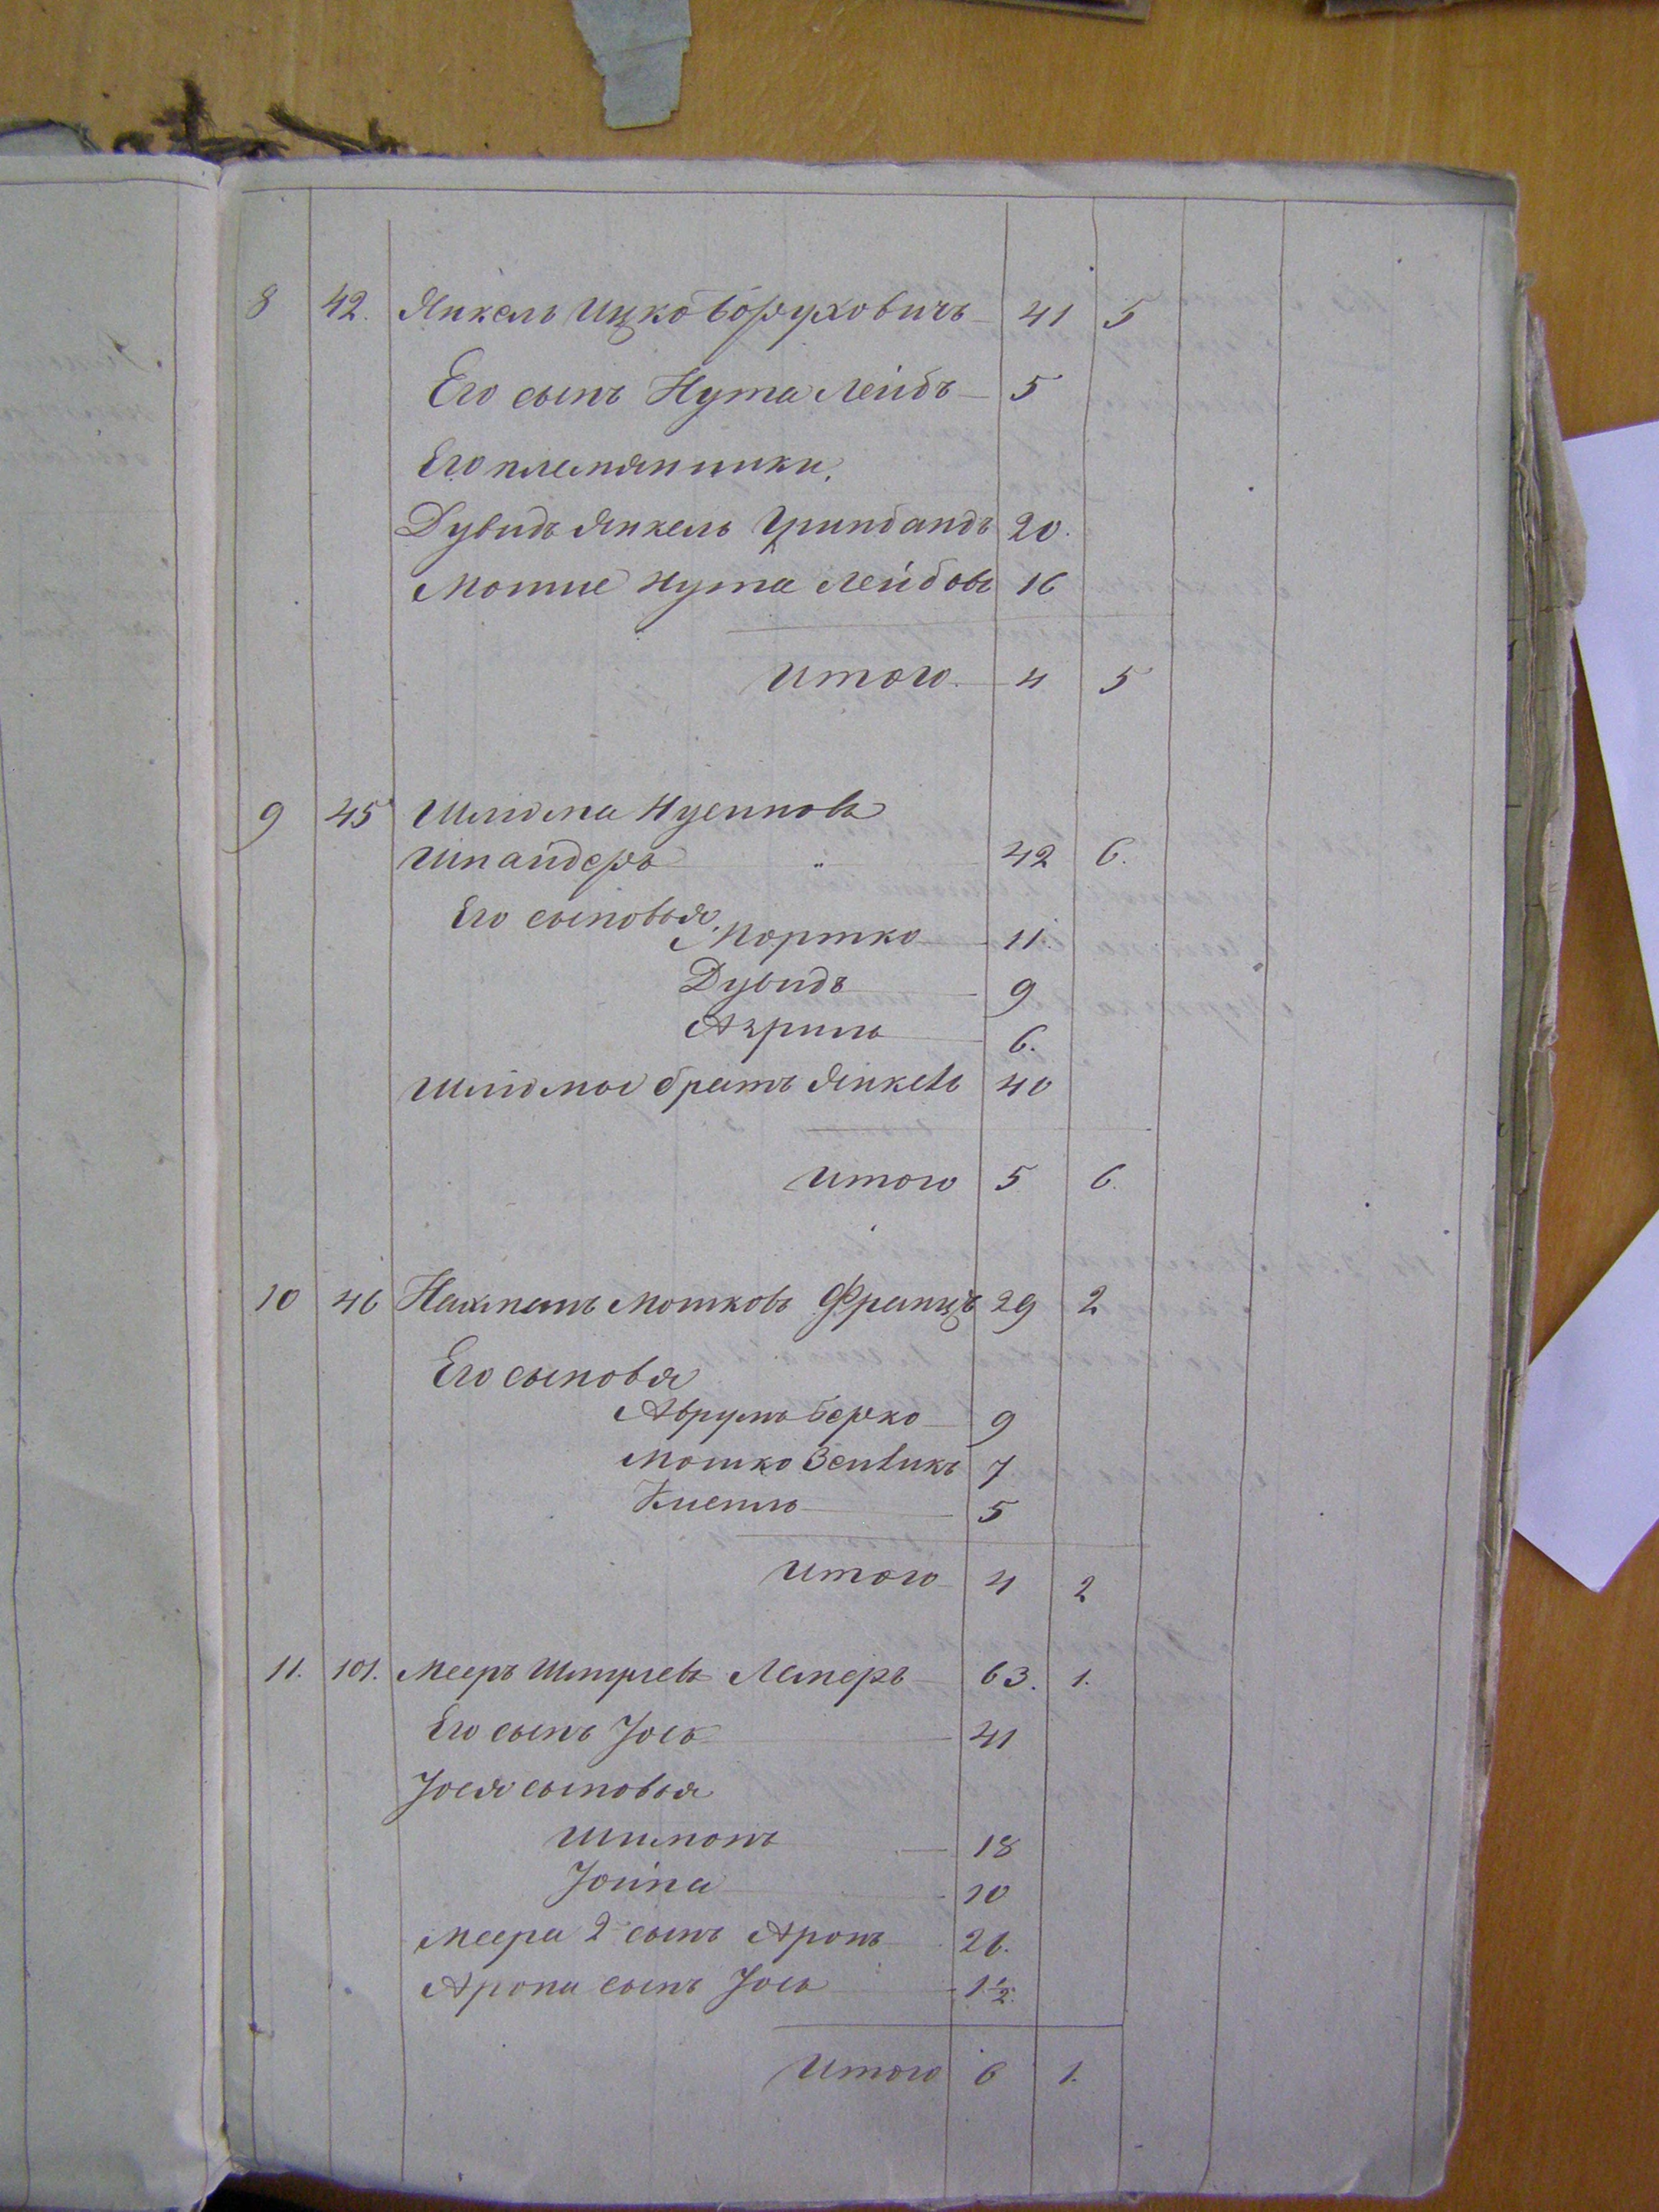 8 42. Янкель Ицко Боруховичъ 41 5
Его сынъ Нута Лейбъ 5
Его племянники.
Дувидъ Янкель Гринбандъ 20.
Мотие Нута Лейбовъ 16
Итого 4 5
9 45 Шлиома Нусиновъ
Шнайдеръ „ 42 6.
Его сыновья
Мортко 11.
Дувидъ 9
Азриль 6.
Шліомы братъ Янкель 40
Итого 5 6.
10 46 Нахманъ Мошковъ Францъ 29 2
Его сыновья
Аврумъ Берко 9
Мошко Зейликъ 7
5
Итого 4 2
11. 101. Мееръ Лемперъ 63. 1.
Его сынъ Іось 41
Іося сыновья
Шимонъ 18
Іойна 10
Меера 2 сынъ Аронъ 26.
Арона сынъ Іось 1½.
Итого 6 1.